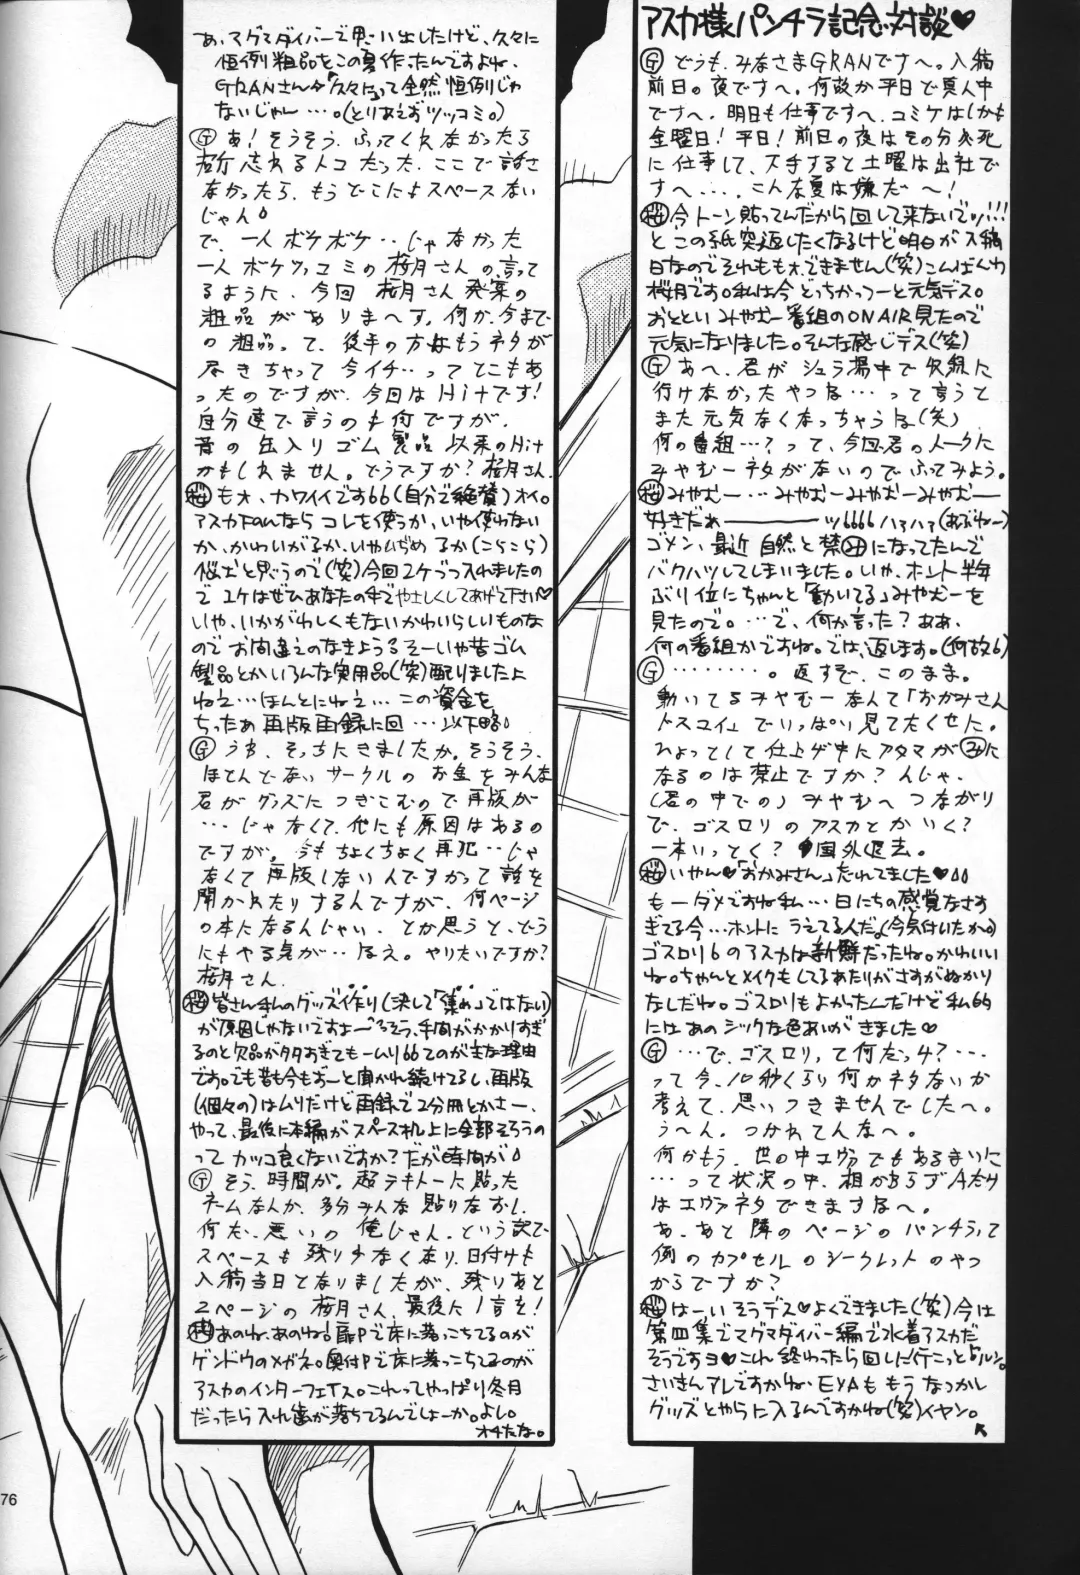 アスカ様パンチラ記念対談♥
Ⓖどうも、みなさまGRANですへ。入稿
前日の夜ですへ。何故か平日ど真人中
ですへ。明日も仕事ですへ。コミケはしかも
金曜日！平日！前日の夜はその分必死
に仕事して、ヘ手すると土曜は出社で
すへ...。こんな夏は嫌だ〜！
桜今トーン貼ってんだから回して来ないでッ!!!
とこの紙突返したくなるけど明日が入稿
日なのでそれもも才、できません(笑)こんばんわ
桜月です。私は今どっちかっつーと元気デス。
おとといみやむー番組のON AIR見たので
元気になりました。そんな感じデス(笑)
Ⓖあへ、君がシュラ場中で収録に
行けなかったやつね…って言うと
また元気なくなっちゃうね(笑)
何の番組…？って、今回君のトークに
みやむーネタがないのでふってみよう。
桜みやむー…みやむーみやむーみやむー
好きだぁーーーーッ6666ハァハァ(あぶねー)
ゴメン、最近自然と禁みになってたんで
バクハツしてしまいました。いや、ホント半年
ぶり位にちゃんと「動いてる」みやむーを
見たので。…で、何か言った？ああ、
何の番組かですね。では、返します。(何故6)
Ⓖ………。返すぞ、このまま。
動いてるみやむーなんて「おかみさん
ドスコイ」でいっぱい見てたくせに。
ひょっとして仕上げ中にアタマがみに
なるのは禁止ですか？んじゃ、
(君の中での)みやむへつながり
で、ゴスロリのアスカとかいく？
一本いっとく？国外退去。
桜いやん♥「おかみさん」たれてました♥
もーダメですね私…日にちの感覚なさす
ぎてる今…ホントにうえてる人だ。(今気付いたか。)
ゴスロリ6のアスカは新鮮だったね。かわいい
ね。ちゃんとメイクもしてるあたりがさすがぬかり
なしだね。ゴスロリもよかったんだけど私的
にはあのシックな色あいがきました♥
Ⓖ…で、ゴスロリって何だっけ？…
って今、10秒くらい何かネタないか
考えて、思いつきませんでしたへ。
う〜ん。つかれてんなへ。
何かもう、世の中エヴァでもあるまいに
…って状況の中、相かわらずAだけ
はエヴァネタできますなへ。
あ、あと隣のページのパンチラって
例のカプセルのシークレットのやつ
からですか？
桜はーいそうデス♥よくできました(笑)今は
第四集でマグマダイバー編で水着アスカだ
そうですヨ♥これ終わったら回しに行こっとよルン。
さいきんアレですかね、EVAももうなつかし
グッズとやらに入るんですかね(笑)イヤン。
あ、マグマダイバーで思い出したけど、久々に
恒例粗品をこの夏作ったんですよね。
GRANさん々「久々に」って全然恒例じゃ
ないじゃん…。(とりあえずツッコミ。)
Ⓖあ！そうそう、ふってくれなかったら
危所忘れるトコだった、ここで話さ
なかったら、もうどこにもスペースない
じゃん
で、一人ボケボケ‥じゃなかった
一人ボケツッコミの桜月さんの言って
るように、今回桜月さん発案の
粗品がありま〜す。何か、今まで
の粗品って、後手の方はもうネタが
尽きちゃって今イチ…ってとこもあ
ったのですが、今回はHitです！
自分達で言うのも何ですが、
昔の缶入りゴム製品以来のHit
かもしれません。どうですか？桜月さん
桜もォ、カワイイです66(自分で絶賛)オイ。
アスカFanならコレを使うか、いや使わない
か、かわいがるか、いやいぢめるか(こらこら)
悩むと思うので(笑)今回2ケづつ入れましたの
で1ケはぜひあなたの手でやさしくしてあげて下さい♥
いや、いかがわしくもないかわいらしいものな
のでお間違えのなきようるそーいや昔ゴム
製品とかいろんな実用品(笑)配りましたよ
ねェ…ほんとにねェ…この資金を
ちったあ再版再録に回…以下略
Ⓖうわ、そっちにきましたか。そうそう、
ほとんどないサークルのお金をみんな
君がグッズにつぎこむので再版が
…じゃなくて、他にも原因はあるの
ですが。今もちょくちょく再犯‥じゃ
なくて再版しない人ですかって話を
聞かれたりするんですが、何ページ
の本になるんじゃい、とか思うと、どう
にもやる気が…ねえ。やりたいですか？
桜月さん。
桜皆さん私のグッズ作り(決して「集め」ではない)
が原因じゃないですよー゛るそう、手間がかかりすぎ
るのと欠品が多すぎてもームリ66てのが主な理由
です。でも昔も今もずーと聞かれ続けてるし、再版
(個々の)はムリだけど再録で2分冊とかさー、
やって、最後に本編がスペース机上に全部そろうの
ってカッコ良くないですか？だが時間が
Ⓖそう、時間が。超テキトーに貼った
ネームなんか、多分みんな貼りなおし、
何だ、悪いの俺じゃん。という訳で
スペースも残り少なくなり、日付けも
入稿当日となりましたが、残りあと
2ページの桜月さん、最後に1言を！
桜あのね、あのね！扉Pで床に落っこちてるのが
ゲンドウのメガネ。奥付Pで床に落っこちてるのが
アスカのインターフェイス。これってやっぱり冬月
だったら入れ歯が落ちてるんでしょーか。よし。
オチたな。
76